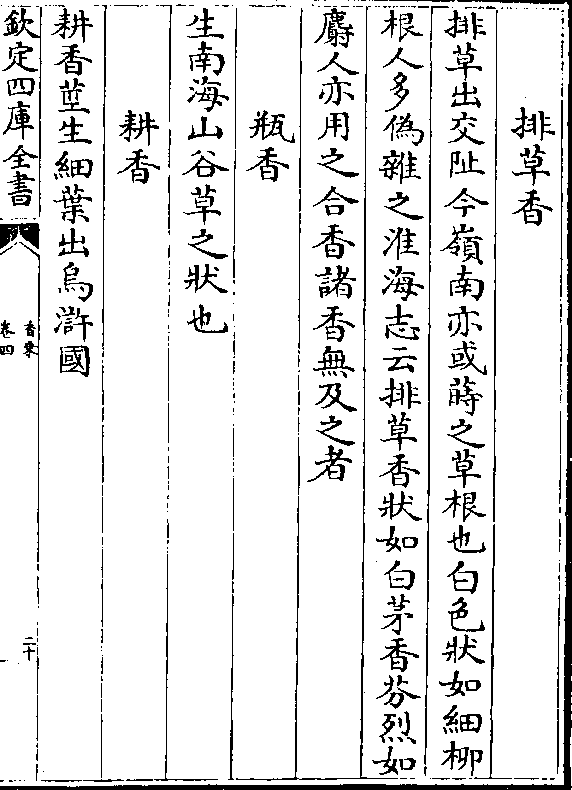 排草香
排草出交阯今嶺南亦或蒔之草根也白色狀如細柳
根人多偽雜之淮海志云排草香狀如白茅香芬烈如
麝人亦用之合香諸香無及之者
瓶香
生南海山谷草之狀也
耕香
耕香莖生細葉出烏滸國
欽定四庫全書
香乘
卷四
二十